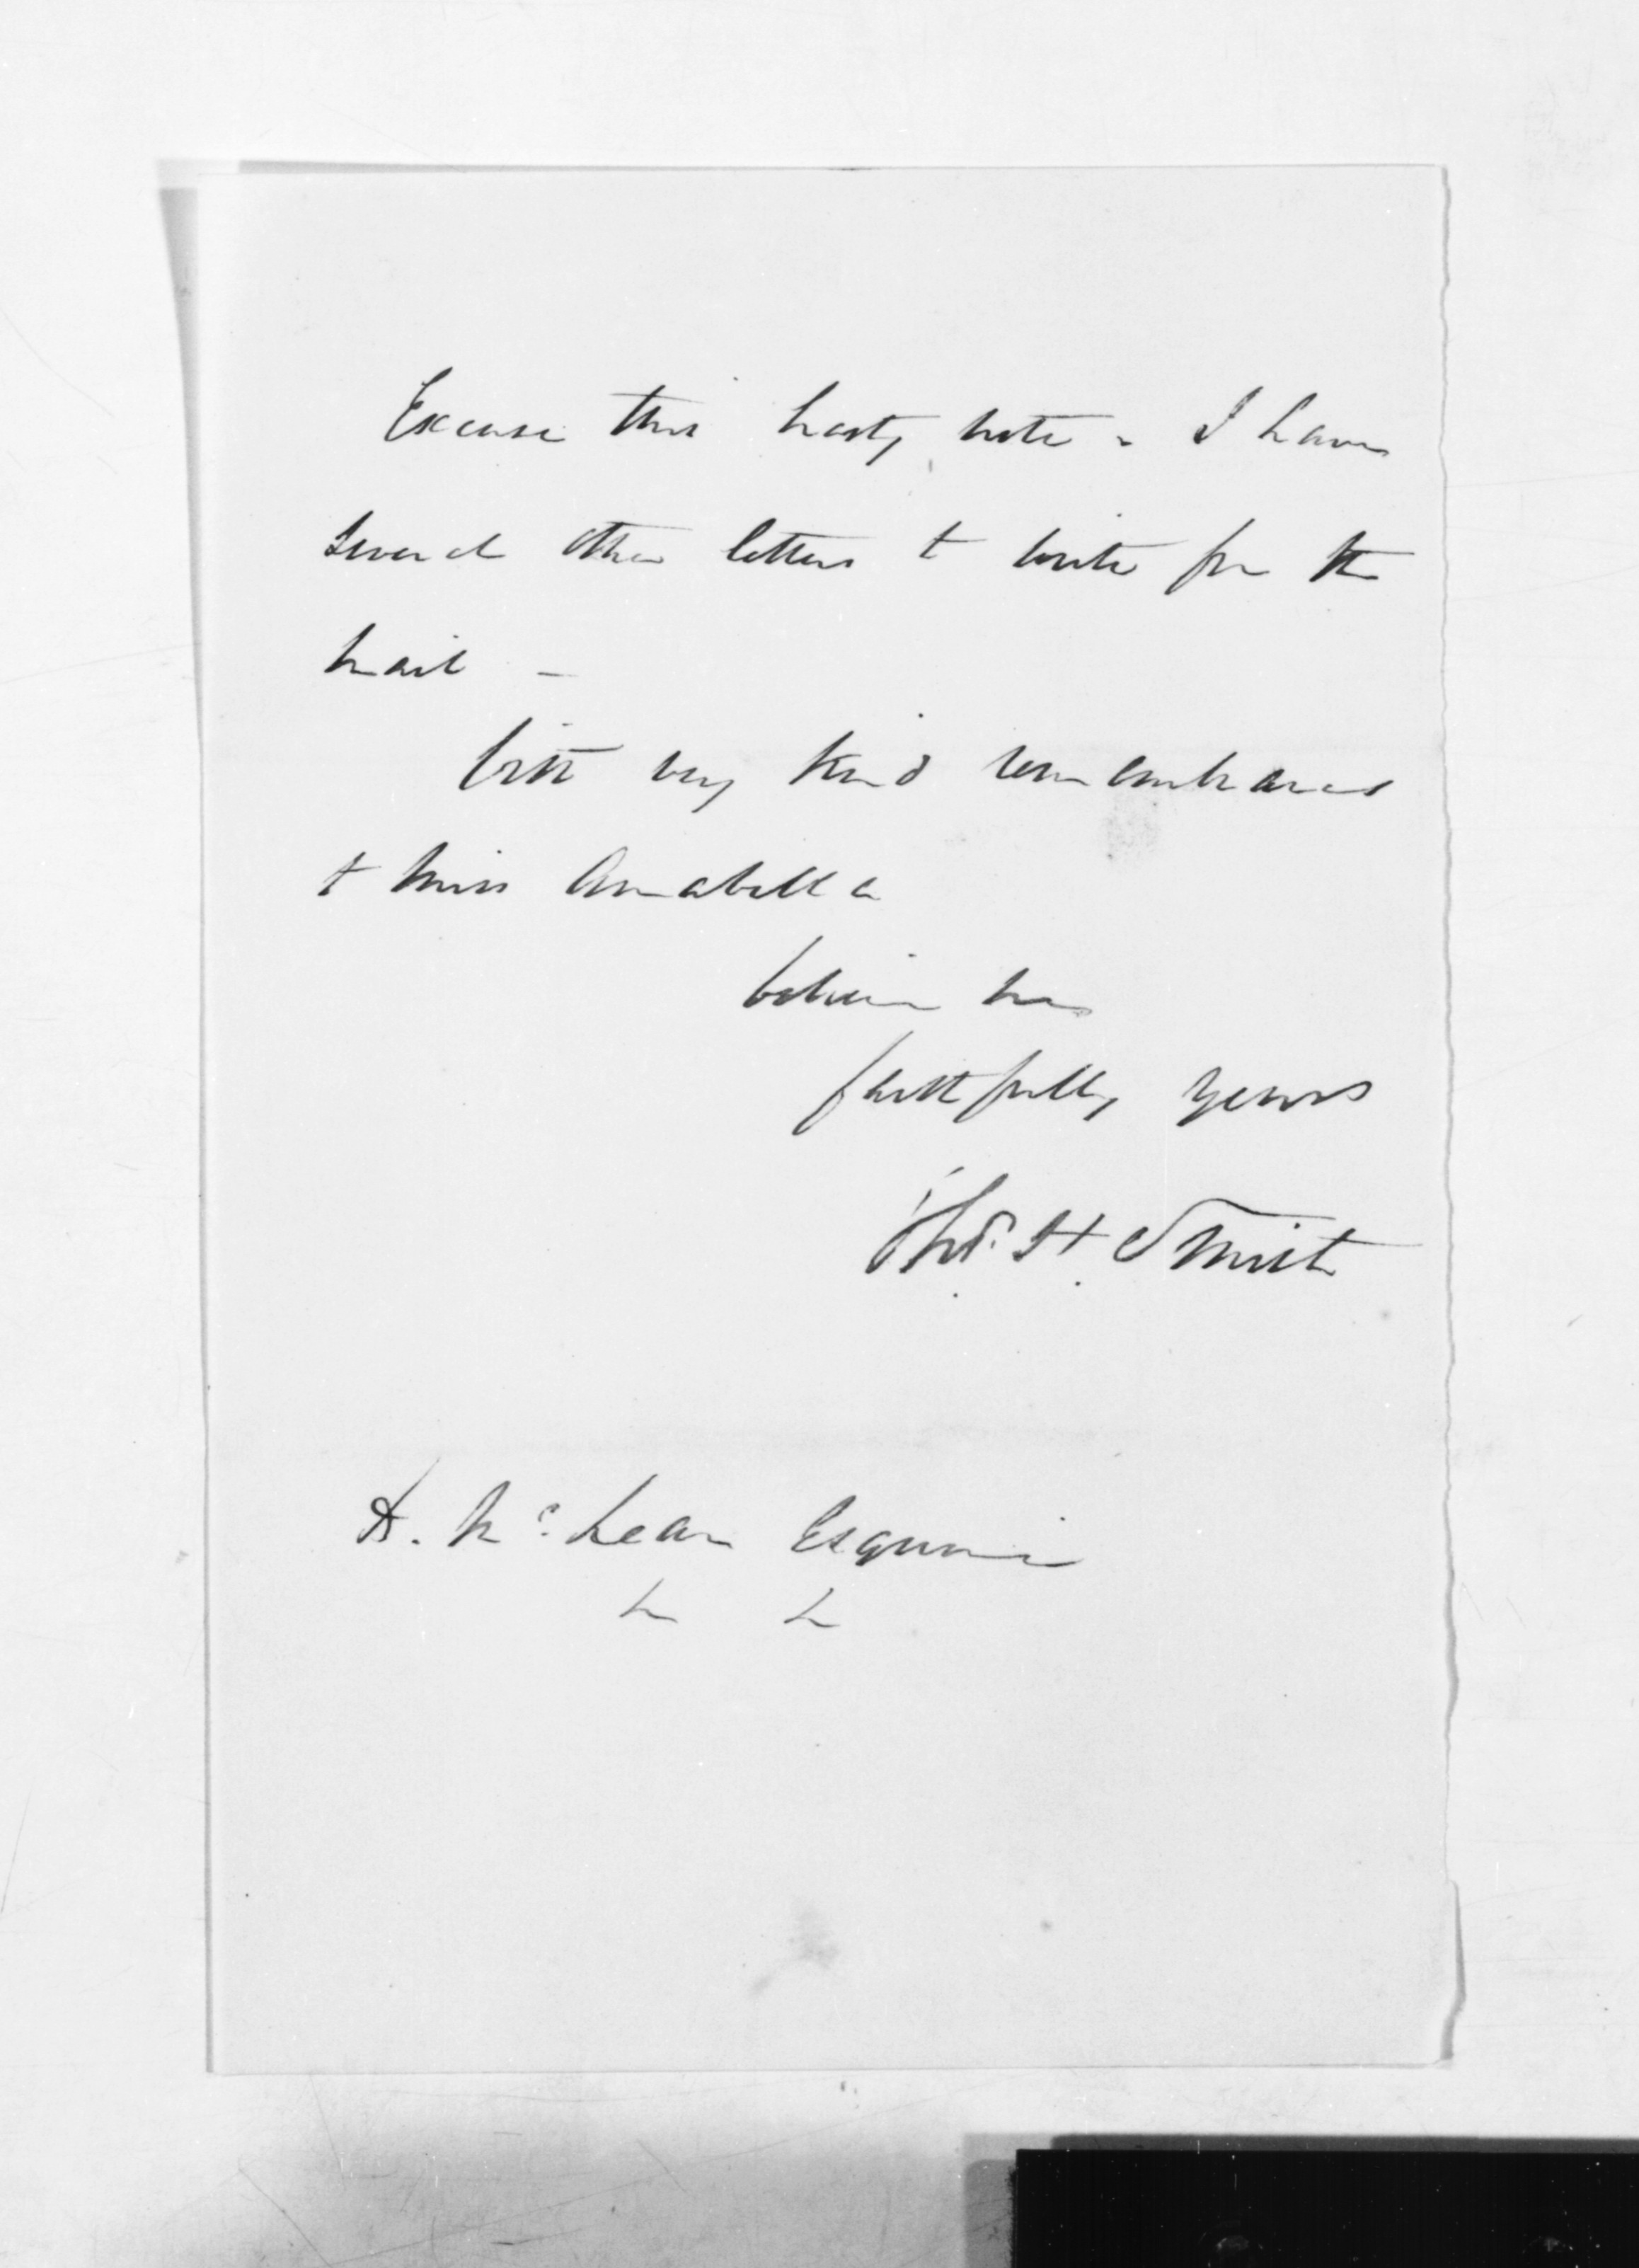 Excuse this hasty note - I have
several other letters to write for the
mail -
With very kind remembrances
to Miss Annabella
believe me
faithfully yours
Thos. H. Smith
D. McLean Esquire